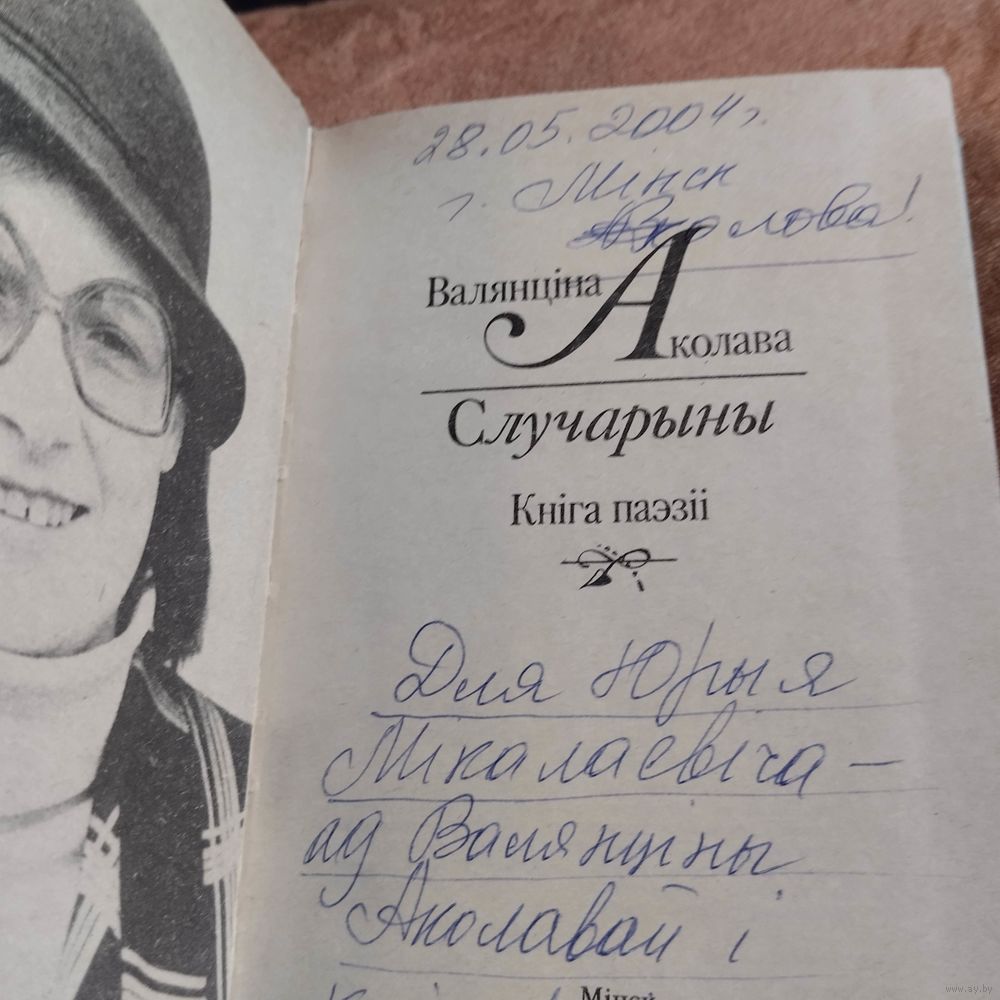 28.05.2004 г.
г. Мінск
Валянціна
Аколава
Случарыны
Кніга паэзіі
Для Юрыя
Мікалаевіча —
ад Валянціны
Аколавай і
Мінск
www.ay.by